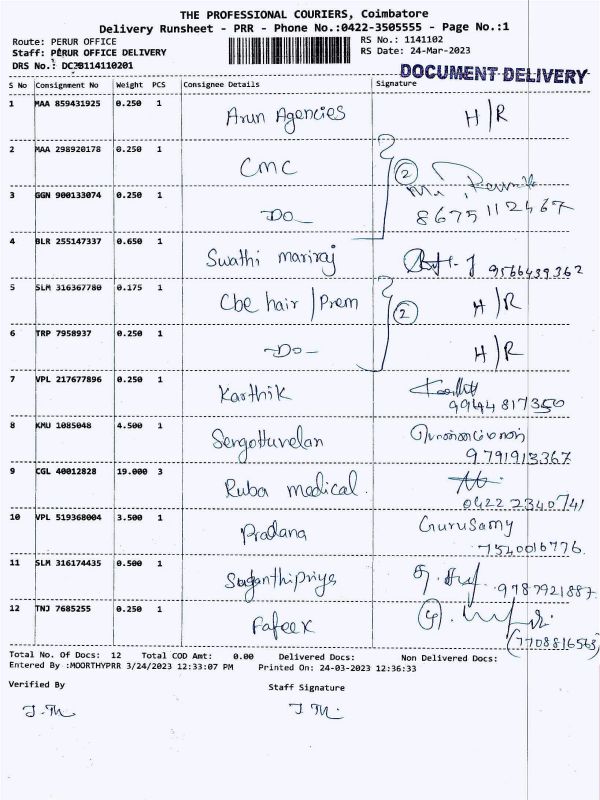 THE PROFESSIONAL COURIERS, Coimbatore
Delivery Runsheet - PRR - Phone No.:0422-3505555 - Page No.:1
Route: PERUR OFFICE RS No.: 1141102
Staff: PERUR OFFICE DELIVERY RS Date: 24-Mar-2023
DRS No.: DC2B114110201 DOCUMENT DELIVERY
S No Consignment No Weight PCS Consignee Details Signature
1 MAA 859431925 0.250 1 Arun Agencies H/R
2 MAA 298920178 0.250 1 CMC 2
3 GGN 900133074 0.250 1 Do 8675112467
4 BLR 255147337 0.650 1 Swathi mariraj 9566439362
5 SLM 316367780 0.175 1 Cbe hair / Prem 2 H/R
6 TRP 7958937 0.250 1 Do H/R
7 VPL 217677896 0.250 1 Karthik
9944817350
8 KMU 1085048 4.500 1 Sengottuvelan
9791913367
9 CGL 40012828 19.000 3 Ruba medical.
0422 2340741
10 VPL 519368004 3.500 1 Pradana GuruSamy
7540016776.
11 SLM 316174435 0.500 1 Suganthipriya 9787921887
12 TNJ 7685255 0.250 1 Fafeek
7708816563
Total No. Of Docs: 12 Total COD Amt: 0.00 Delivered Docs: Non Delivered Docs:
Entered By :MOORTHYPRR 3/24/2023 12:33:07 PM Printed On: 24-03-2023 12:36:33
Verified By Staff Signature